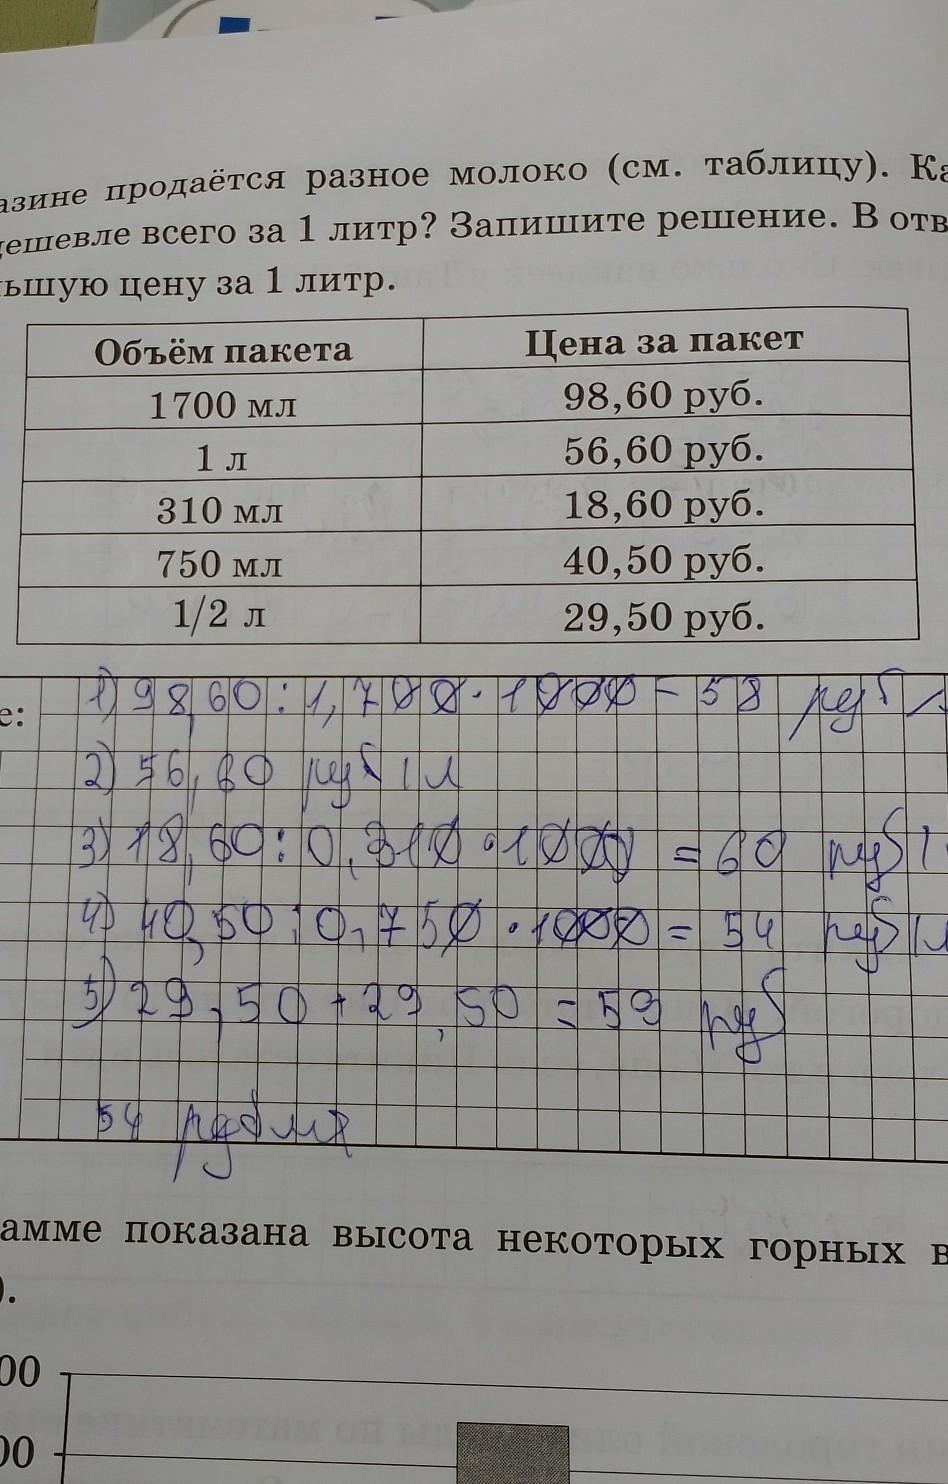 азине продаётся разное молоко (см. таблицу). Ка
дешевле всего за 1 литр? Запишите решение. В отв
ьшую цену за 1 литр.
Объём пакета Цена за пакет
1700 мл 98,60 руб.
1 л 56,60 руб.
310 мл 18,60 руб.
750 мл 40,50 руб.
1/2 л 29,50 руб.
е:
1) 98,60 : 1,700 · 1000 = 58 руб
2) 56,60 руб 1 л
3) 18,60 : 0,310 · 1000 = 60 руб
4) 40,50 : 0,750 · 1000 = 54 руб 1л
5) 29,50 + 29,50 = 59 руб
54 рубля
амме показана высота некоторых горных в
).
00
00